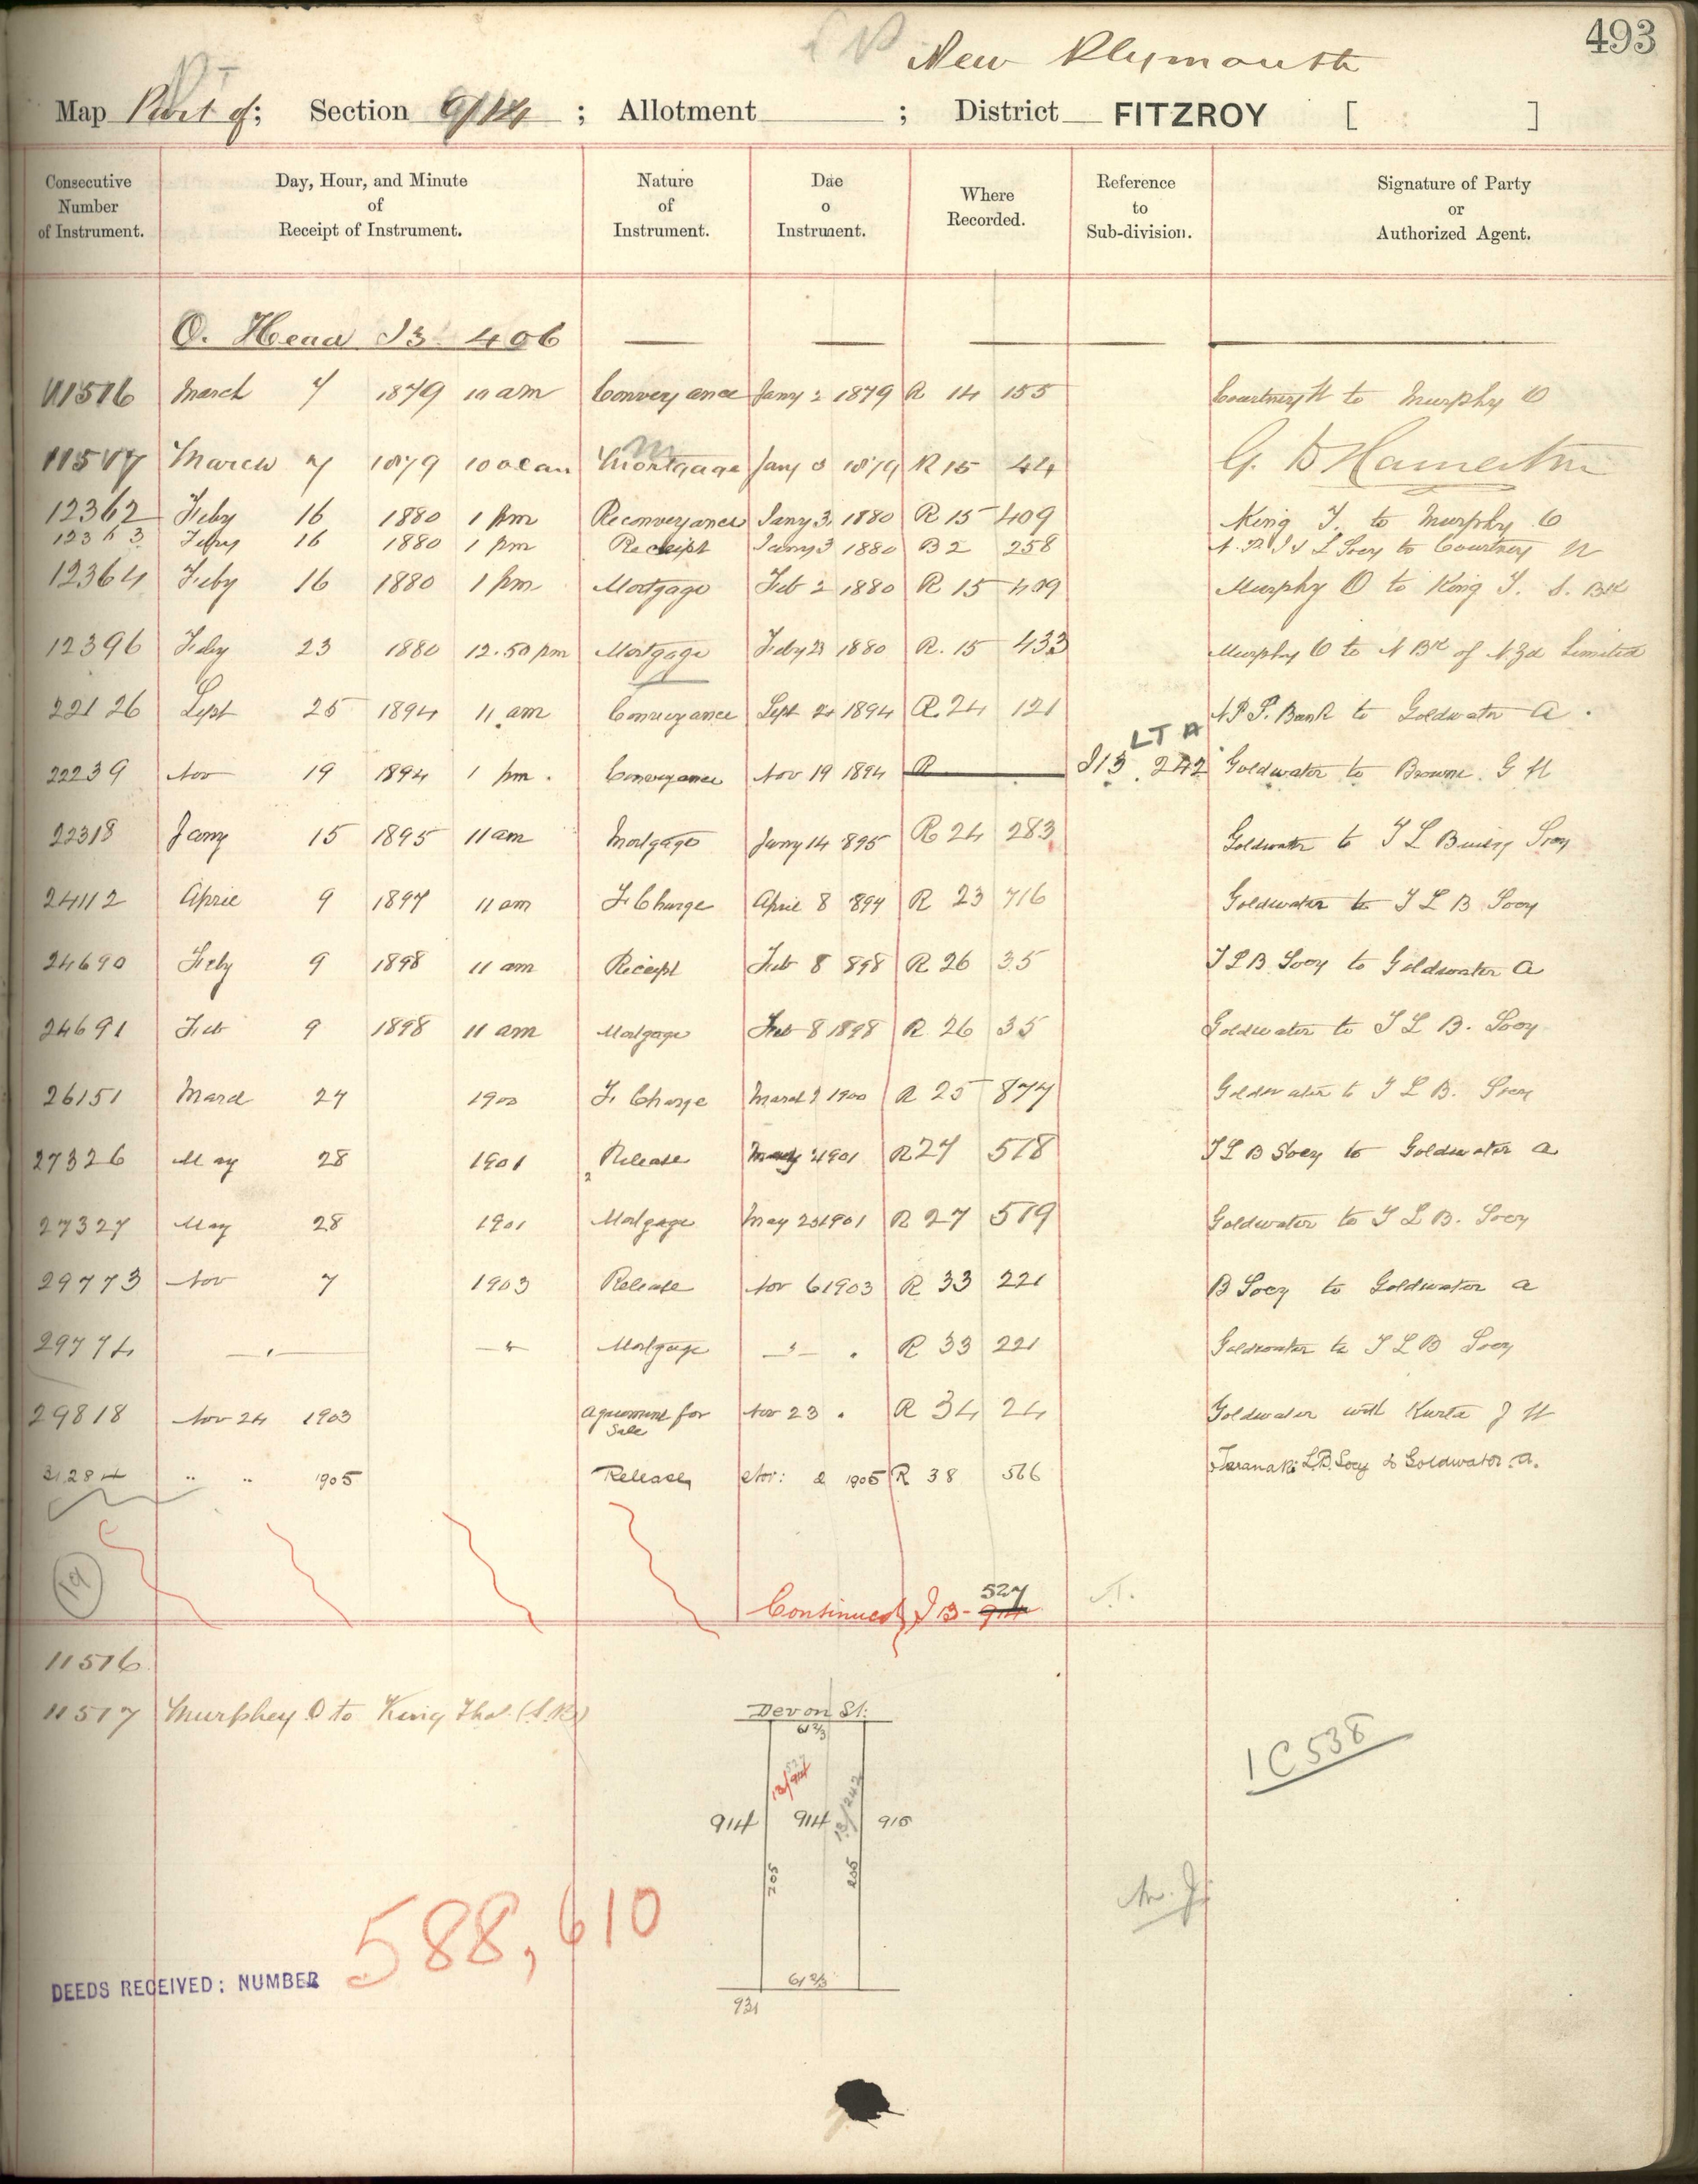 493
New Plymouth
Map Part of; Section 914 ; Allotment ; District FITZROY [ ]
Consecutive Number of Instrument.
Day, Hour, and Minute of Receipt of Instrument.
Nature of Instrument.
Dae o Instrument.
Where Recorded.
Reference to Sub-division.
Signature of Party or Authorized Agent.
O. Head I3 406
11516 March 7 1879 10 am Conveyance Jany 2 1879 R 14 155 Courtney W to Murphy O
11517 March 7 1879 10 oc am Mortgage Jany 3 1879 R 15 44 G. D Hamerton
12362 Feby 16 1880 1 pm Reconveyance Jany 3 1880 R 15 409 King T. to Murphy O
12363 Feby 16 1880 1 pm Receipt Jany 3 1880 B 2 258 to Courtney W
12364 Feby 16 1880 1 pm Mortgage Feb 2 1880 R 15 409 Murphy O to King T. S. BK
12396 Feby 23 1880 12.50 pm Mortgage Feby 23 1880 R. 15 433 Murphy O to N Bk of N Zd Limited
22126 Sept 25 1894 11 am Conveyance Sept 1894 R. 24 121 N P S. Bank to Goldwater A.
LT A
22239 Nov 19 1894 1 pm. Conveyance Nov 19 1894 R I13. 242 Goldwater to Browne. G H
22318 Jany 15 1895 11 am Mortgage Jany 14 895 R 24 283 Goldwater to T L Building Socy
24112 April 9 1897 11 am F. Charge April 8 897 R 23 716 Goldwater to T L B Socy
24690 Feby 9 1898 11 am Receipt Feb 8 898 R 26 35 T L B Socy to Goldwater A
24691 Feb 9 1898 11 am Mortgage Feb 8 1898 R. 26 35 Goldwater to T L B. Socy
26151 March 27 1900 F. Charge March 1900 R 25 877 Goldwater to T L B. Socy
27326 May 28 1901 Release May 1901 R 27 578 T L B Socy to Goldwater A
27327 May 28 1901 Mortgage May 23 1901 R 27 579 Goldwater to T L B. Socy
29773 Nov 7 1903 Release Nov 6 1903 R 33 221 B Socy to Goldwater A
29774 — " — — " Mortgage — " — . R 33 221 Goldwater to T L B Socy
29818 Nov 24 1903 Agreement for Sale Nov 23 . R 34 24 Goldwater with Kurta J H
31284 " " 1905 Release Nov: 2 1905 R 38 566 Taranaki L.B. Socy to Goldwater. A.
19
Continued I 13- 527
11516
11517 Murphy O to King Thos. (S.B.)
Devon St.
61 2/3
13/527
914 914 13/242 915
205 205
61 2/3
931
1C 538
588,610
DEEDS RECEIVED: NUMBER